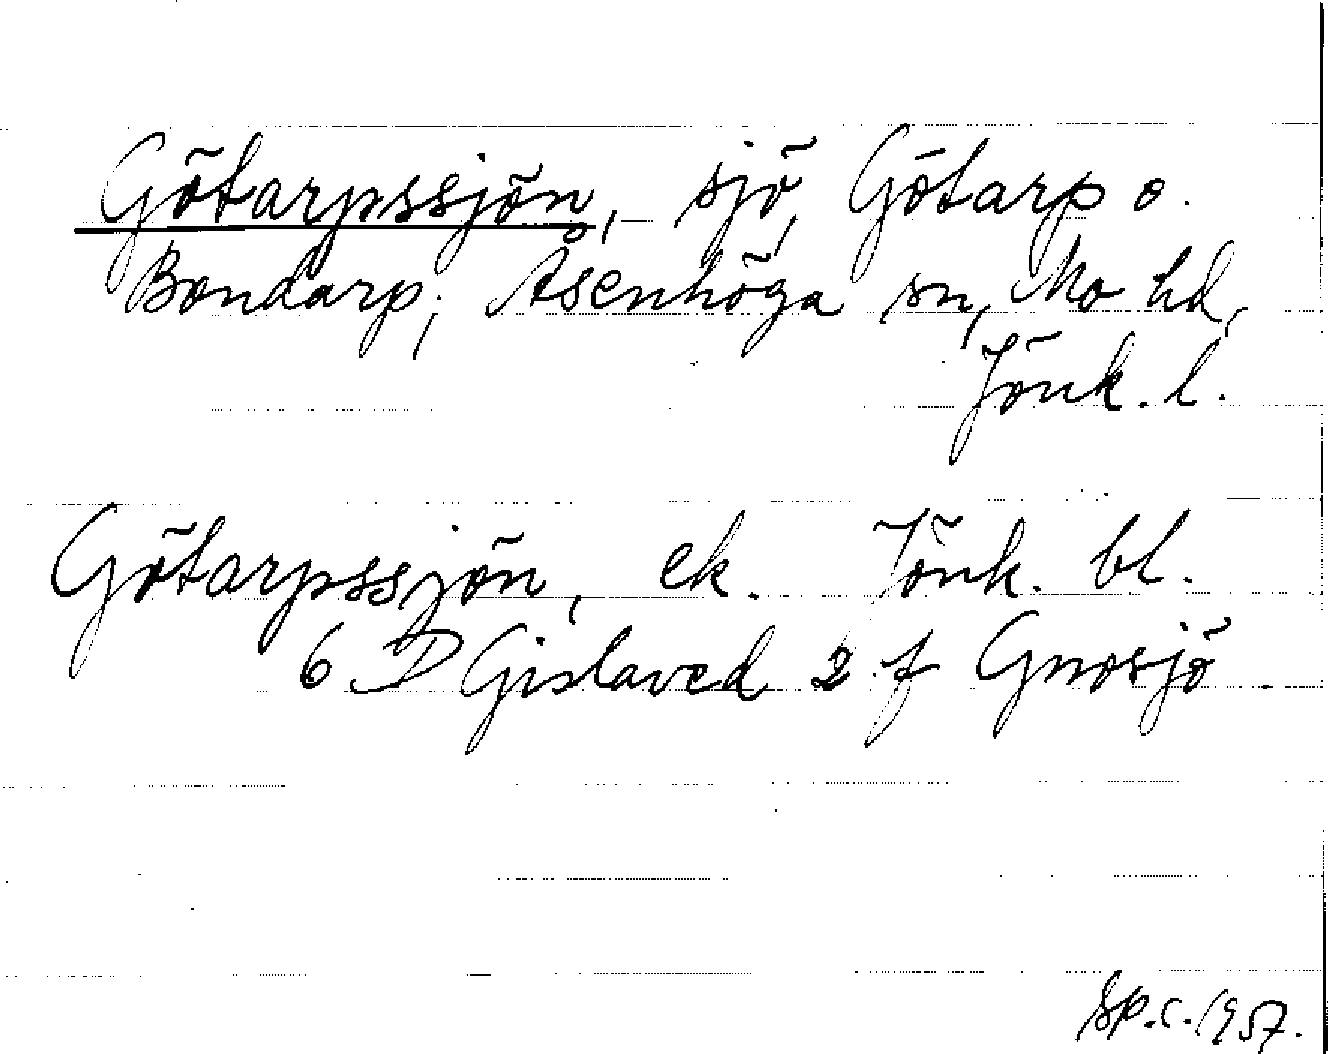 Götarpssjön, sjö, Götarp o.
Bondarp; Åsenhöga sn, Mo hd,
Jönk. l.
Götarpssjön, ek. Jönk. bl.
6 D Gislaved 2 f Gnosjö
Sp.c. 1957.